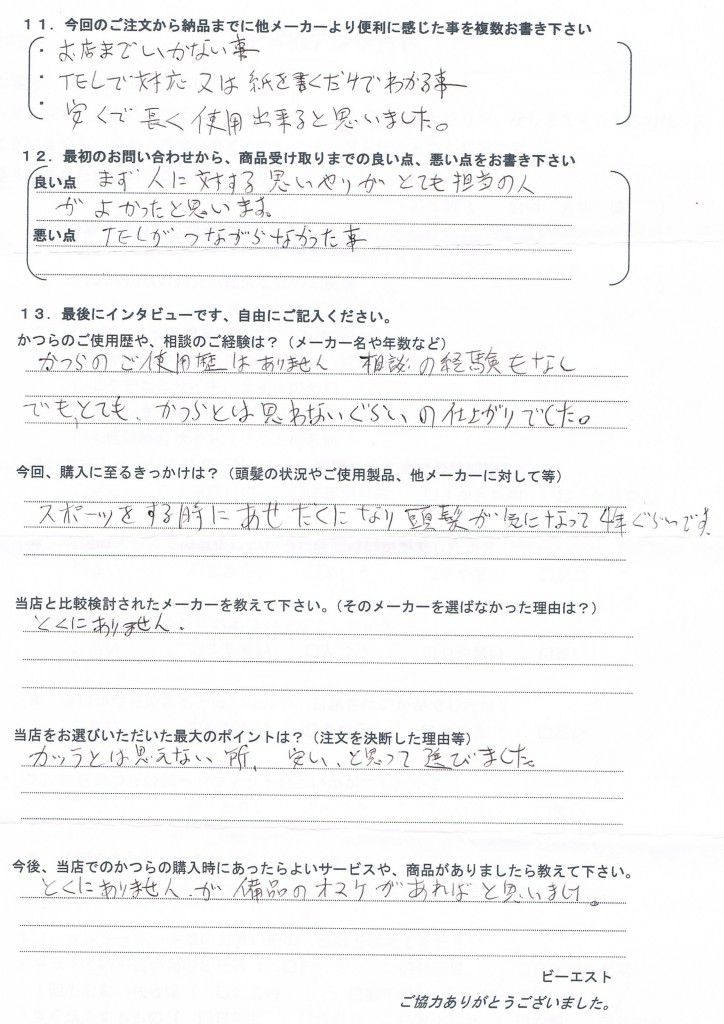 １１．今回のご注文から納品までに他メーカーより便利に感じた事を複数お書き下さい
・お店までいかない事
・TELで対応 又は 紙を書くだけでわかる事
・安くて長く使用出来ると思いました。
１２．最初のお問い合わせから、商品受け取りまでの良い点、悪い点をお書き下さい
良い点 まず人に対する思いやりが とても担当の人
が よかったと思います。
悪い点 TELが つながらなかった事
１３．最後にインタビューです、自由にご記入ください。
かつらのご使用歴や、相談のご経験は？（メーカー名や年数など）
かつらの ご使用歴は ありません 相談の経験もなし
でも、とても、かつらとは思わないぐらいの仕上がりでした。
今回、購入に至るきっかけは？（頭髪の状況やご使用製品、他メーカーに対して等）
スポーツをする時に あせだくになり 頭髪が気になって 4年ぐらいです。
当店と比較検討されたメーカーを教えて下さい。（そのメーカーを選ばなかった理由は？）
とくにありません.
当店をお選びいただいた最大のポイントは？（注文を決断した理由等）
カツラとは思えない所、安い、と思って 選びました。
今後、当店でのかつらの購入時にあったらよいサービスや、商品がありましたら教えて下さい。
とくにありません.が 備品のオマケがあればと思います。
ビーエスト
ご協力ありがとうございました。